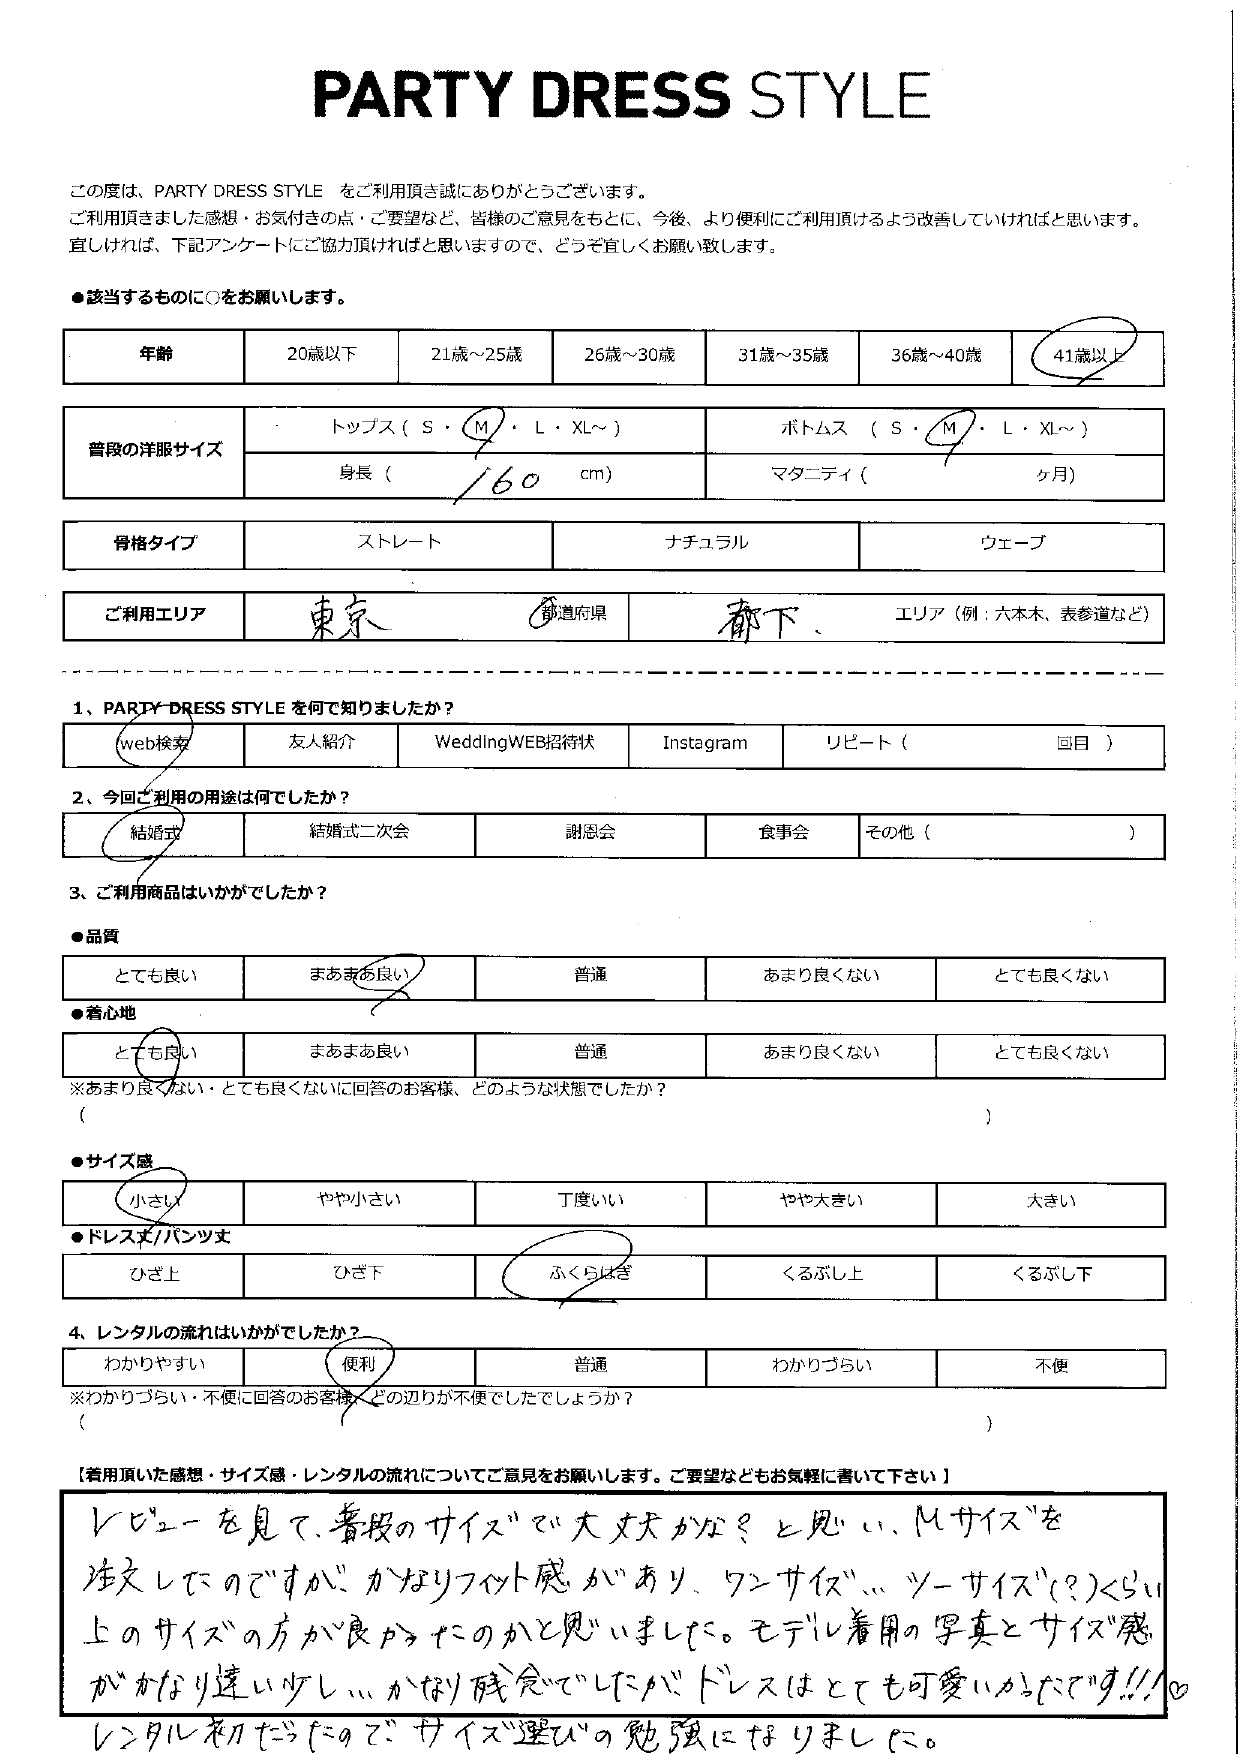 PARTY DRESS STYLE
この度は、PARTY DRESS STYLE をご利用頂き誠にありがとうございます。
ご利用頂きました感想・お気付きの点・ご要望など、皆様のご意見をもとに、今後、より便利にご利用頂けるよう改善していければと思います。
宜しければ、下記アンケートにご協力頂ければと思いますので、どうぞ宜しくお願い致します。
●該当するものに○をお願いします。
年齢 20歳以下 21歳～25歳 26歳～30歳 31歳～35歳 36歳～40歳 41歳以上
普段の洋服サイズ トップス ( S ・ M ・ L ・ XL～ ) ボトムス ( S ・ M ・ L ・ XL～ )
身長 ( 160 cm) マタニティ ( ヶ月)
骨格タイプ ストレート ナチュラル ウェーブ
ご利用エリア 東京 都道府県 都下. エリア（例：六本木、表参道など）
1、PARTY DRESS STYLE を何で知りましたか？
web検索 友人紹介 WeddingWEB招待状 Instagram リピート ( 回目 )
2、今回ご利用の用途は何でしたか？
結婚式 結婚式二次会 謝恩会 食事会 その他 ( )
3、ご利用商品はいかがでしたか？
●品質
とても良い まあまあ良い 普通 あまり良くない とても良くない
●着心地
とても良い まあまあ良い 普通 あまり良くない とても良くない
※あまり良くない・とても良くないに回答のお客様、どのような状態でしたか？
( )
●サイズ感
小さい やや小さい 丁度いい やや大きい 大きい
●ドレス丈/パンツ丈
ひざ上 ひざ下 ふくらはぎ くるぶし上 くるぶし下
4、レンタルの流れはいかがでしたか？
わかりやすい 便利 普通 わかりづらい 不便
※わかりづらい・不便に回答のお客様、どの辺りが不便でしたでしょうか？
( )
【着用頂いた感想・サイズ感・レンタルの流れについてご意見をお願いします。ご要望などもお気軽に書いて下さい 】
レビューを見て、普段のサイズで大丈夫かな？と思い、Mサイズを
注文したのですが、かなりフィット感があり、ワンサイズ…ツーサイズ(？)くらい
上のサイズの方が良かったのかと思いました。モデル着用の写真とサイズ感
がかなり違い少し…かなり残念でしたが、ドレスはとても可愛いかったです!!!♡
レンタル初だったので、サイズ選びの勉強になりました。